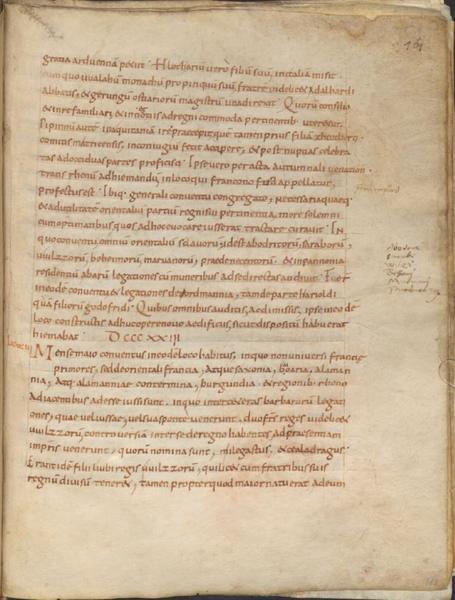 161
gratia arduennā petiit · Hlothariū vero filiū suū, in italiā misit
cum quo uualahū monachū propinquū suū fratrē uidelicet adalhardi
abbatis, & gerungū ostiariorū magistrū una direxit · Quorū consilio
& in re familiari, & in negotiis ad regni commoda pertinentib· uteretur.
Pippinū autē in aquitaniā ire praecepit, quē tamen prius filiā theotberti
comitis matricensis, in coniugiū fecit accipere, & post nuptias celebra
tas ad occiduas partes proficisci · Ipse vero peracta autumnali venation
trans rhenū ad hiemandū in loco qui franconofurd appellatur,
profectus est · Ibiq· generali conventu congregato, necessaria quaeq·
& ad utilitatē orientaliū partiū regni sui pertinentia, more solemni
cum optimatibus quos ad hoc evocare iusserat tractare curavit · In
quo conventu omniū orientaliū sclavorū, id est abodritorū, soraborū,
uuilzorū, beheimorū, marvanorū, praedenecentorū · & in pannonia
residentiū abarū legationes cū muneribus ad se directas audivit · Fuer
in eodē conventu & legationes de nordmannia, tam de parte harioldi
quā filiorū godofridi · Quibus omnibus auditis, ac dimissis, ipse in eodē
loco constructis ad hoc opere novo aedificiis, sicut disposuerat
hiemabat · DCCCXXIII
Mense maio conventus in eodē loco habitus, in quo non universi franciae
primores, sed de orientali francia, atque saxonia, baioaria, alaman
nia, atq· alamanniae contermina, burgundia & regionib· rheno
adiacentibus adesse iussi sunt. in quo inter ceteras barbarorū legati
ones, quae vel iussae, vel sua sponte venerunt, duo fratres reges uidelicet
uuilzorū controversiā inter se de regno habentes ad praesentiam
impris venerunt, quorū nomina sunt, milegastus, & cealadragus ·
Erant idē filii liubi regis uuilzorū, qui licet cum fratribus suis
regnū divisū teneret, tamen propter quod maior natu erat ad eum